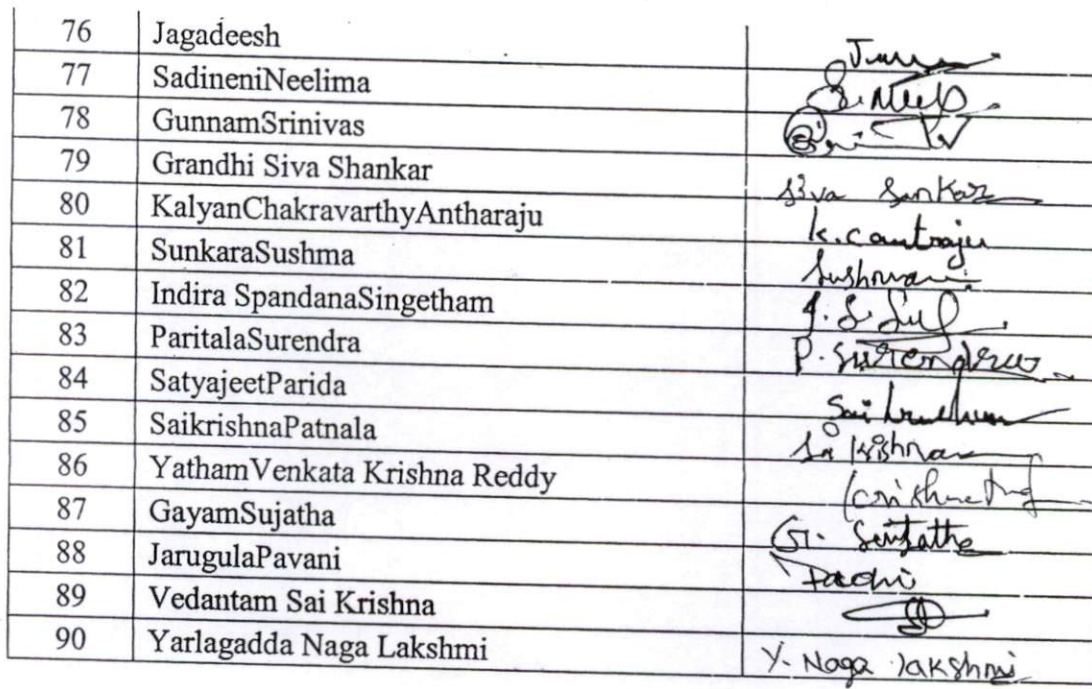 76 Jagadeesh
77 SadineniNeelima S. Neel
78 GunnamSrinivas
79 Grandhi Siva Shankar Siva Sankar
80 KalyanChakravarthyAntharaju k.c antraju
81 SunkaraSushma
82 Indira SpandanaSingetham
83 ParitalaSurendra P. Surendra
84 SatyajeetParida
85 SaikrishnaPatnala Sai Krishna
86 YathamVenkata Krishna Reddy
87 GayamSujatha G. Sujatha
88 JarugulaPavani
89 Vedantam Sai Krishna
90 Yarlagadda Naga Lakshmi Y. Naga lakshmi